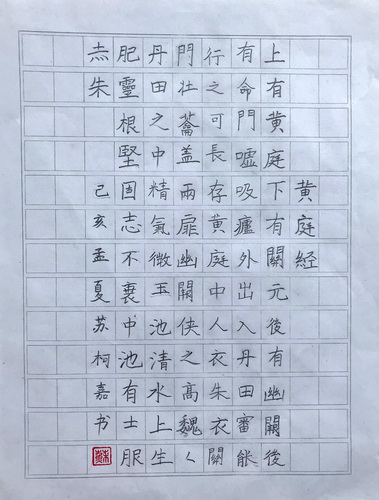 黄庭経
上有黄庭下有關元後有幽闕後
有命門噓吸廬外出入丹田審能
行之可長存黄庭中人衣朱衣關
門壮蘥盖兩扉幽闕侠之高魏〱
丹田之中精氣微玉池清水上生
肥靈根堅固志不衰中池有士服
赤朱
己亥孟夏苏柯嘉书